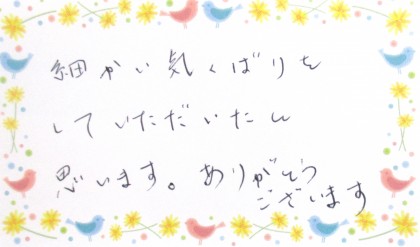 細かい気くばりを
していただいたん
思います。ありがとう
ございます